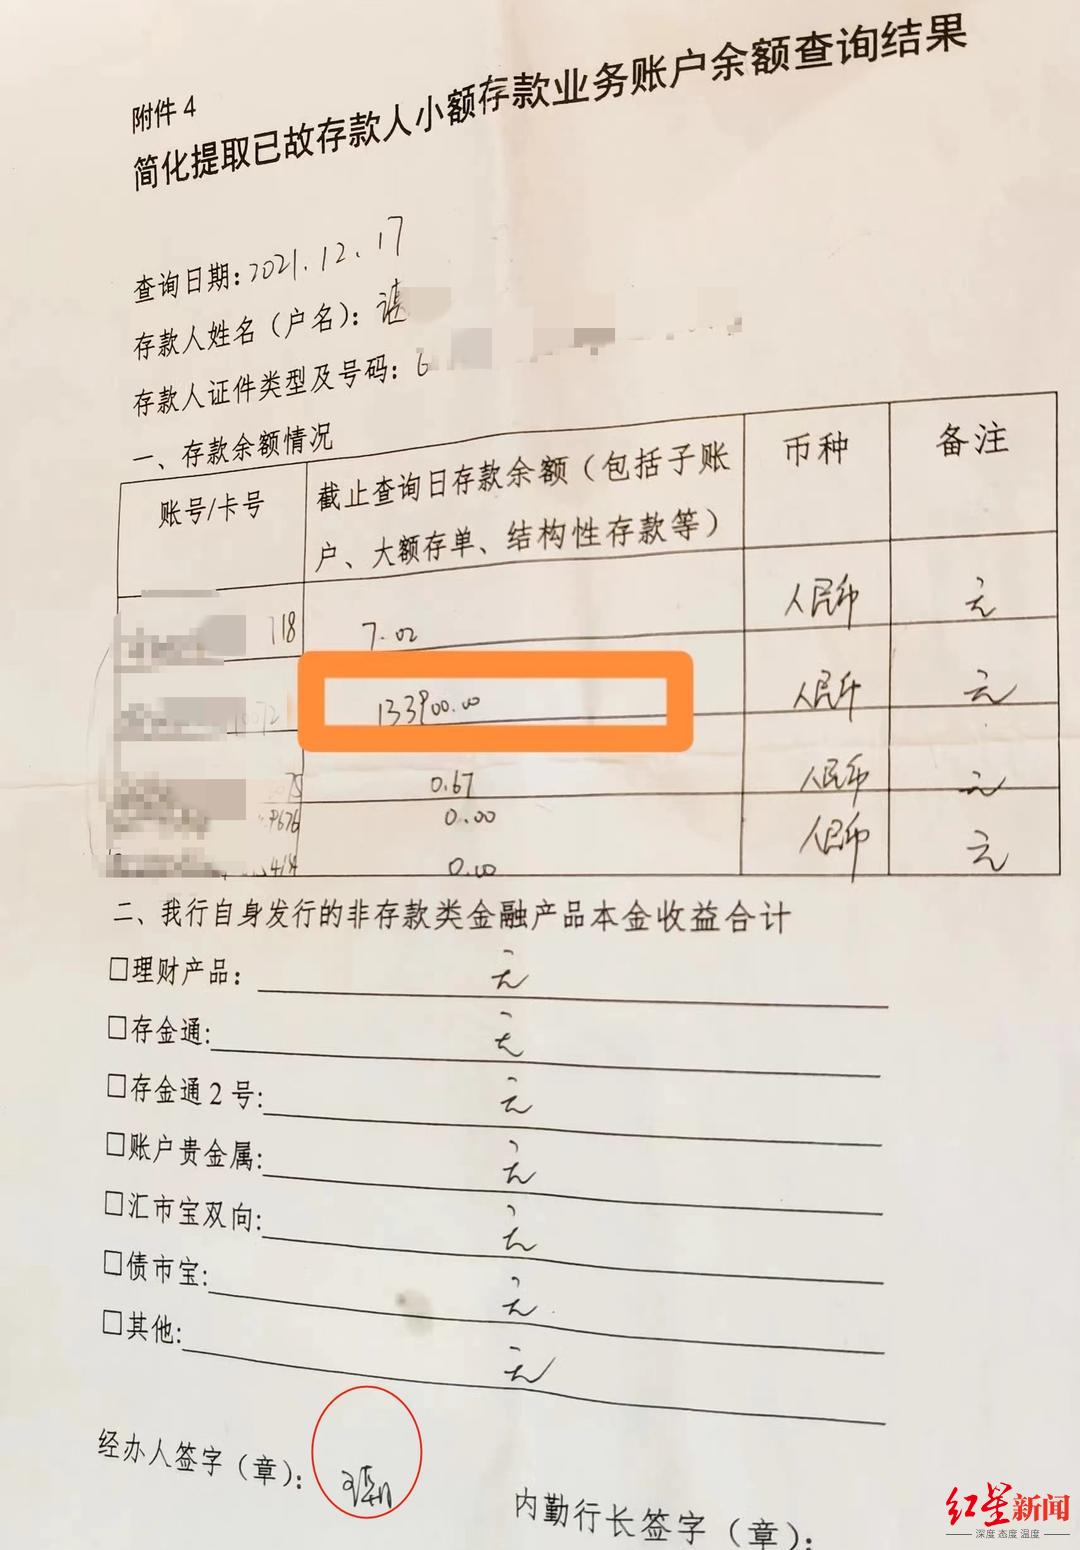 附件4
简化提取已故存款人小额存款业务账户余额查询结果
查询日期:2021.12.17
存款人姓名（户名）：谌
存款人证件类型及号码：6
一、存款余额情况
账号/卡号 截止查询日存款余额（包括子账户、大额存单、结构性存款等） 币种 备注
718 7.02 人民币 元
10072 133900.00 人民币 元
75 0.67 人民币 元
9676 0.00 人民币 元
414 0.00
二、我行自身发行的非存款类金融产品本金收益合计
□理财产品: 元
□存金通: 元
□存金通2号: 元
□账户贵金属: 元
□汇市宝双向: 元
□债市宝: 元
□其他: 元
经办人签字（章）:
内勤行长签字（章）:
红星新闻
深度 态度 温度